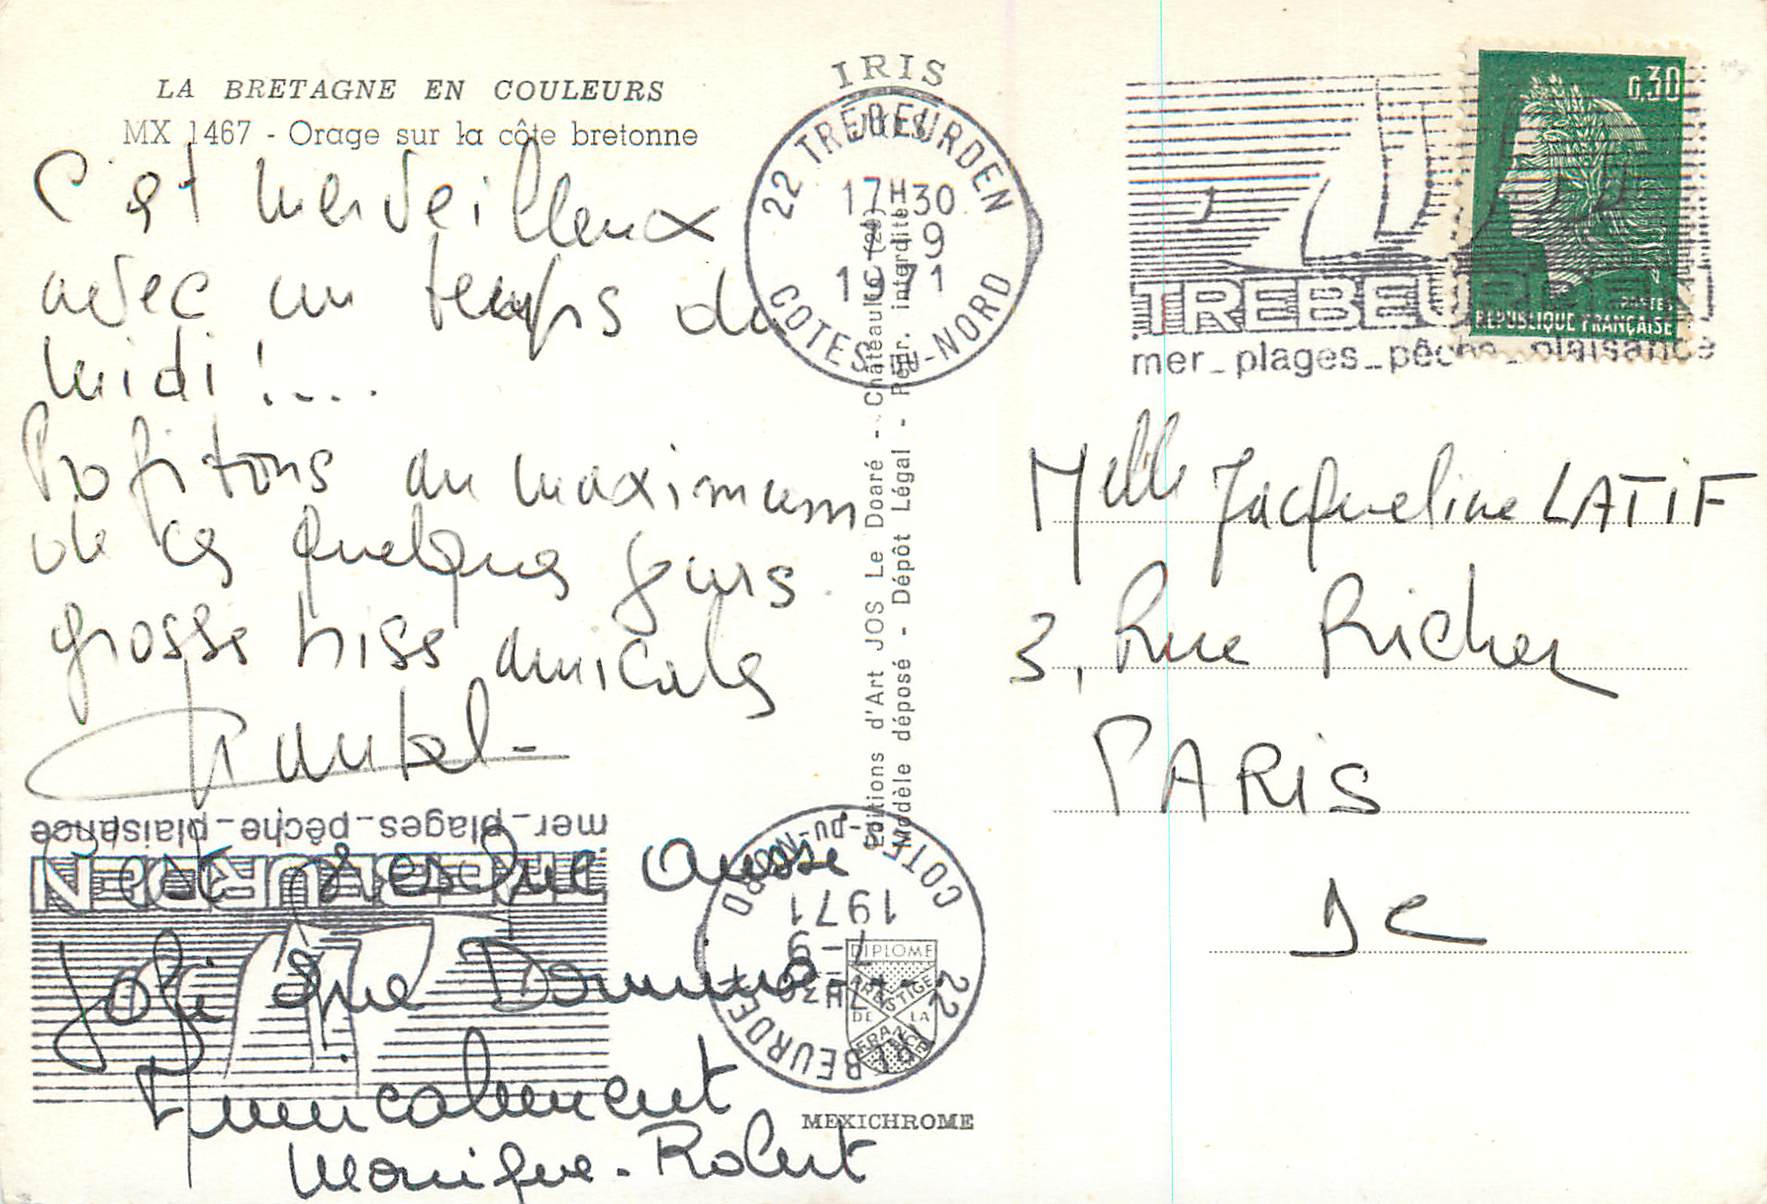 LA BRETAGNE EN COULEURS
MX 1467 - Orage sur la côte bretonne
C'est merveilleux
avec un temps du
midi !....
Profitons au maximum
de ces quelques jours
grosses biss amicales
Chantal -
mer_plages_pêche_plaisance
TREBEURDEN
C'est presque aussi
Joli que Domino...
Amicalement
Monique - Robert
IRIS
22 TREBEURDEN
17H30
7-9
1971
COTES-DU-NORD
Editions d'Art JOS Le Doaré - Châteaulin (29)
Modèle déposé - Dépôt Légal - Repr. interdite
22 TREBEURDEN
17H30
7-9
1971
COTES-DU-NORD
DIPLOME
PRESTIGE
DE LA
FRANCE
MEXICHROME
0,30
POSTES
REPUBLIQUE FRANÇAISE
TREBEURDEN
mer_plages_pêche_plaisance
Melle Jacqueline LATIF
3, Rue Richer
PARIS
9e